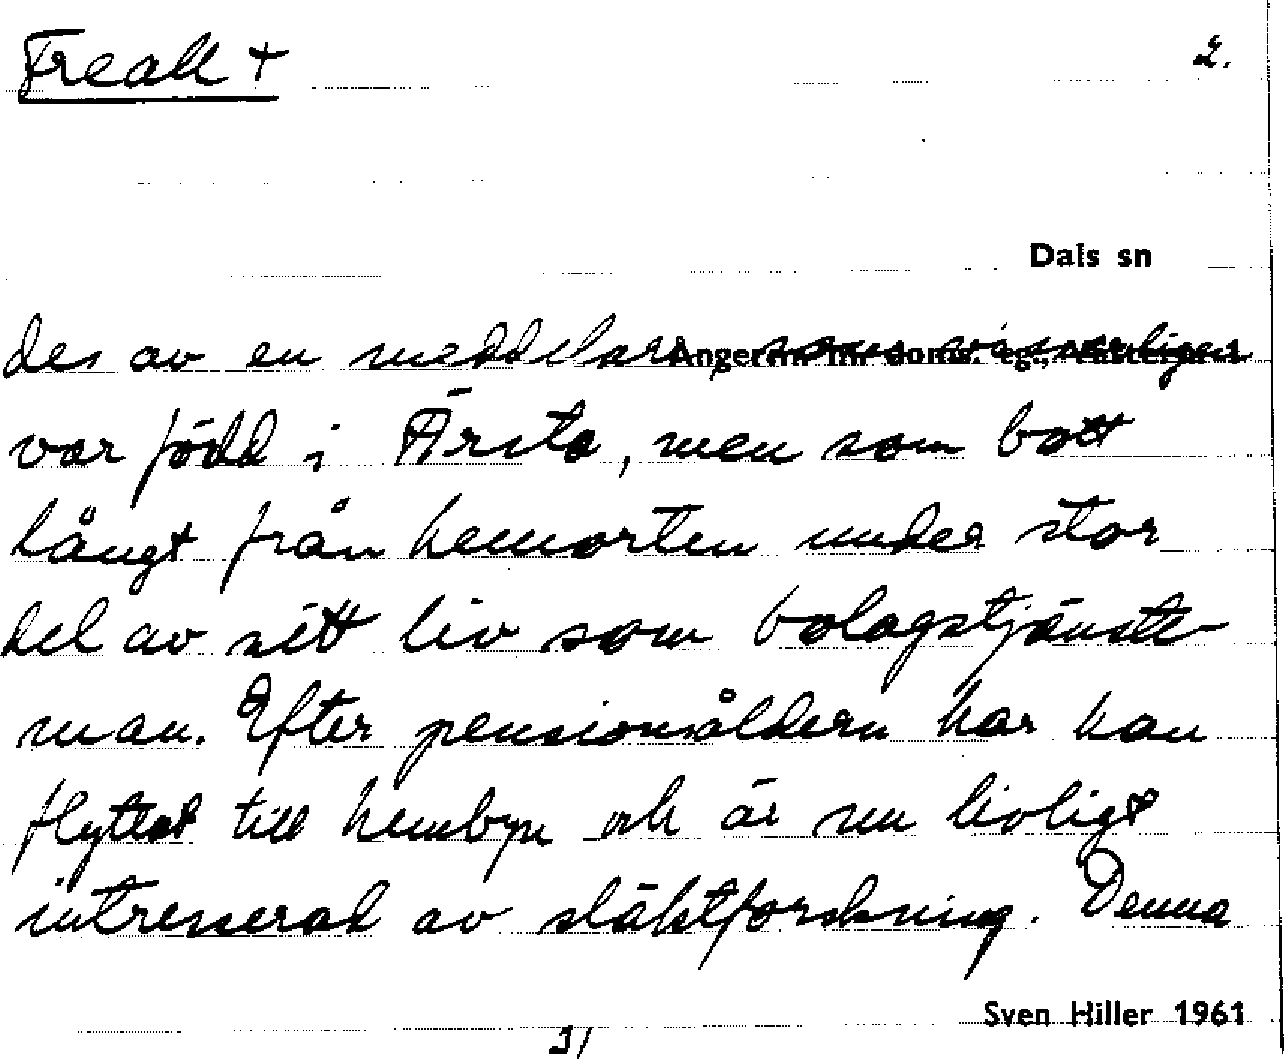 Freall +
2.
Dals sn
des av en meddelare som
Ångerm
var född i Ärsta, men som bott
långt från hemorten under stor
del av sitt liv som bolagstjänste-
man. Efter pensionsåldern har han
flyttat till hembyn och är nu livligt
intresserad av släktforskning. Denna
Sven Hiller 1961